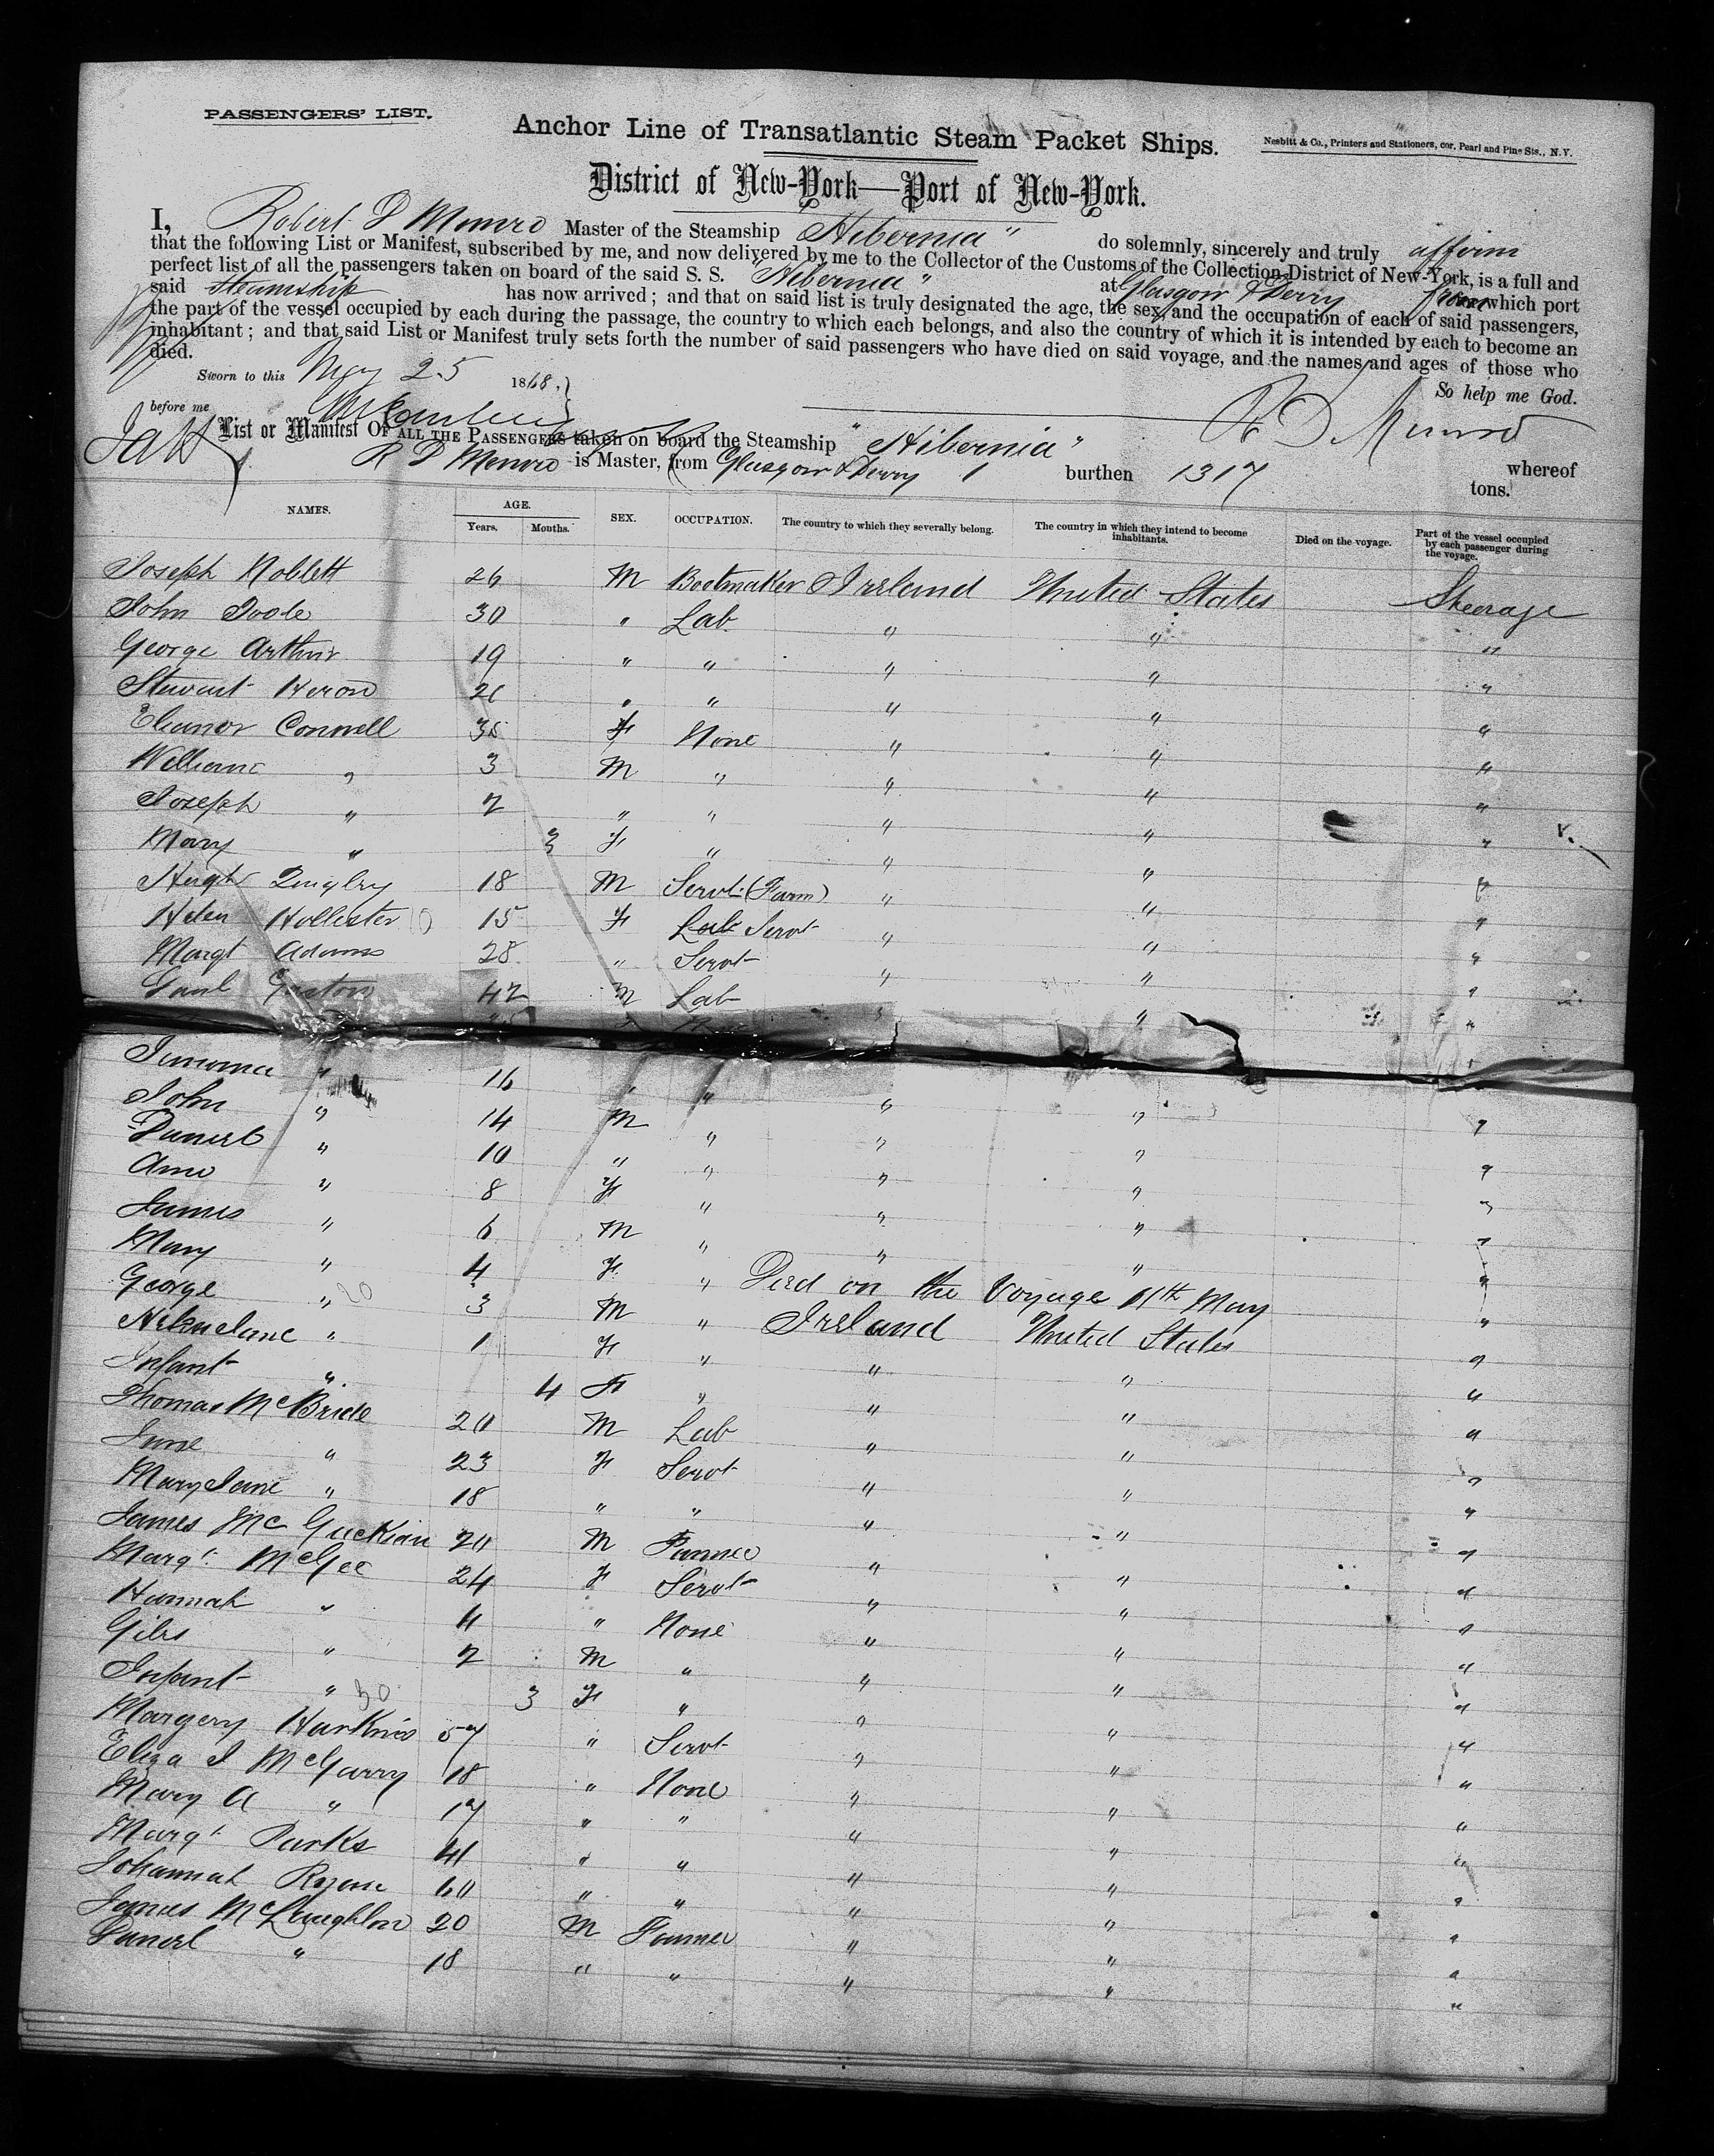 PASSENGERS' LIST.
Anchor Line of Transatlantic Steam Packet Ships.
Nesbitt & Co., Printers and Stationers, cor. Pearl and Pine Sts., N.Y.
District of New-York—Port of New-York.
I, Robert D Munro Master of the Steamship "Hibernia" do solemnly, sincerely and truly affirm
that the following List or Manifest, subscribed by me, and now delivered by me to the Collector of the Customs of the Collection District of New-York, is a full and
perfect list of all the passengers taken on board of the said S. S. "Hibernia" at Glasgow & Derry from which port
said Steamship has now arrived; and that on said list is truly designated the age, the sex, and the occupation of each of said passengers,
the part of the vessel occupied by each during the passage, the country to which each belongs, and also the country of which it is intended by each to become an
inhabitant; and that said List or Manifest truly sets forth the number of said passengers who have died on said voyage, and the names and ages of those who
died.
So help me God.
Sworn to this May 25 1868.
before me
R D Munro
List or Manifest OF ALL THE PASSENGERS taken on board the Steamship "Hibernia" whereof
R D Munro is Master, from Glasgow & Derry burthen 1317 tons.
NAMES. AGE. SEX. OCCUPATION. The country to which they severally belong. The country in which they intend to become inhabitants. Died on the voyage. Part of the vessel occupied by each passenger during the voyage.
Years. Months.
Joseph Noblett 26 M Bootmaker Ireland United States Steerage
John Toole 30 " Lab " " "
George Arthur 19 " " " " "
Stewart Heron 21 " " " " "
Eleanor Connell 35 F None " " "
William " 3 M " " " "
Joseph " 2 " " " " "
Mary " 3 F " " " "
Hugh Quigley 18 M Servt (Farm) " " "
Helen Hollester 10 15 F Lab Servt " " "
Margt Adams 28 " Servt " " "
Gaston 42 M Lab " " "
Jemima " 16 " " " " "
John " 14 M " " " "
Daniel " 10 " " " " "
Ann " 8 F " " " "
James " 6 M " " " "
Mary " 4 F " Died on the Voyage 11th May "
George " 20 3 M " Ireland United States "
Helen Jane " 1 F " " " "
Infant " 4 F " " " "
Thomas McBride 20 M Lab " " "
Jane " 23 F Servt " " "
Mary Jane " 18 " " " " "
James McGuckian 20 M Farmer " " "
Margt McGee 24 F Servt " " "
Hannah " 4 " None " " "
Giles " 2 M " " " "
Infant " 30 3 F " " " "
Margery Harkins 57 " Servt " " "
Eliza J McGarry 18 " None " " "
Mary A " 17 " " " " "
Margt Parks 41 " " " " "
Johannah 60 " " " " "
James McLaughlon 20 M Farmer " " "
Daniel " 18 " " " " "